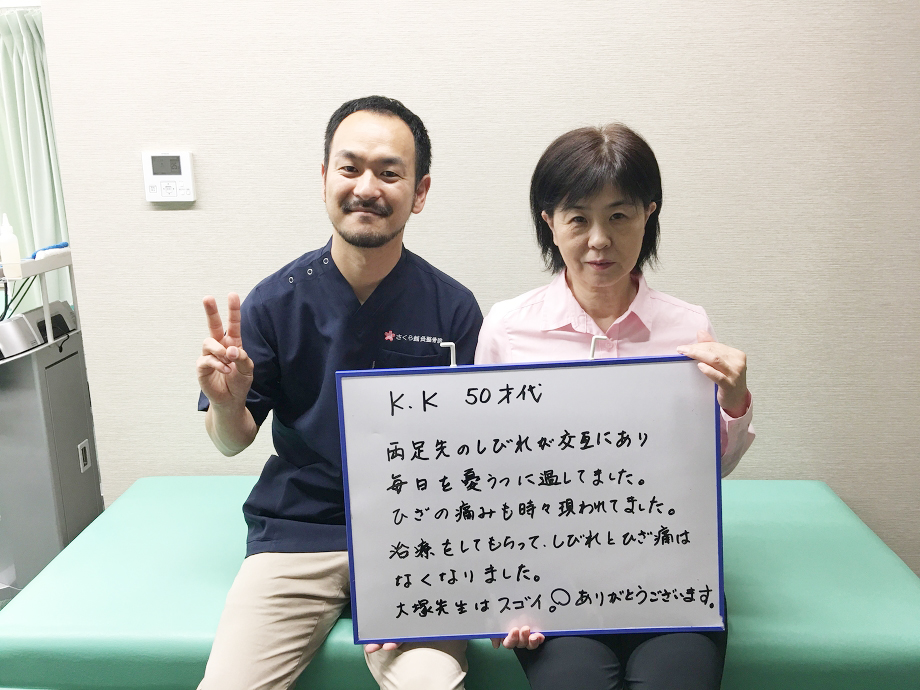 さくら鍼灸整骨院
K.K 50才代
両足先のしびれが交互にあり
毎日を憂うつに過してました。
ひざの痛みも時々現われてました。
治療をしてもらって、しびれとひざ痛は
なくなりました。
大塚先生はスゴイ。ありがとうございます。